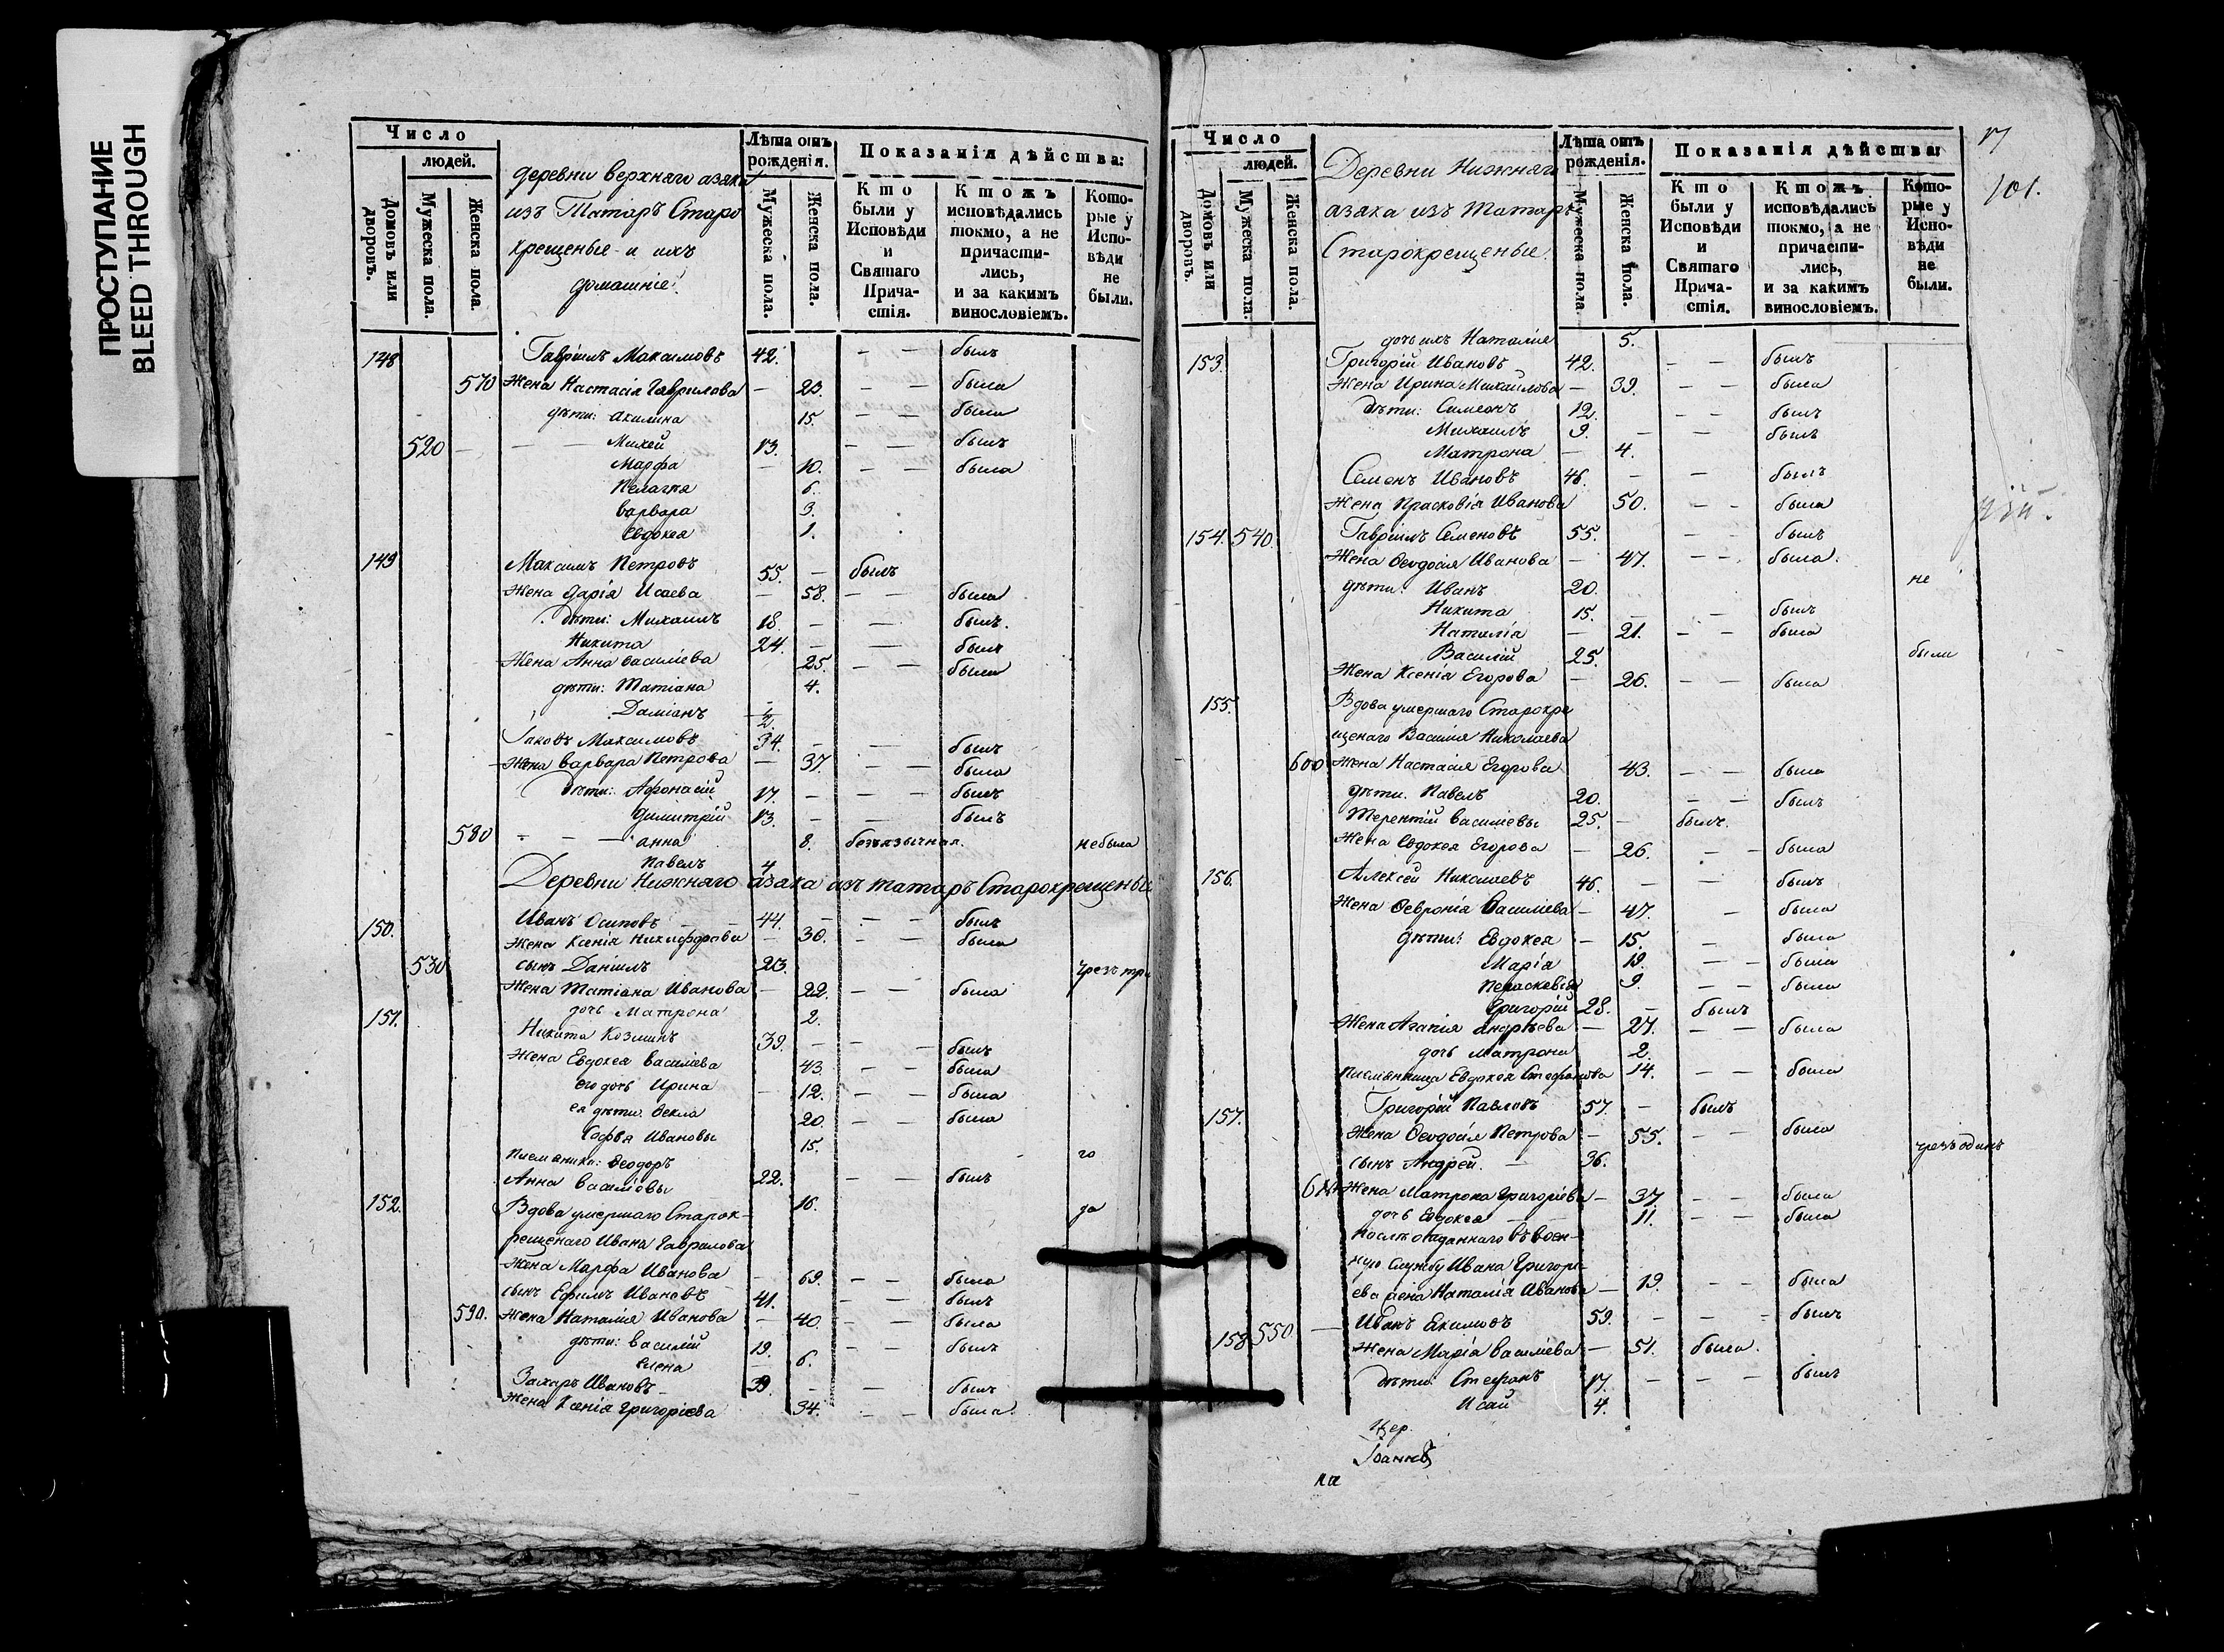 ПРОСТУПАНИЕ
BLEED THROUGH
Число
людей.
Домовъ или дворовъ.
Мужеска пола.
Женска пола.
деревни верхняго азяка
изъ Татаръ Старо
крещеные и ихъ
домашніе.
Лѣта отъ рожденія.
Мужеска пола.
Женска пола.
Показанія дѣйства:
Кто были у Исповѣди и Святаго Причастія.
Ктожъ исповѣдались токмо, а не причастились, и за какимъ винословіемъ.
Которые у Исповѣди не были.
148 Гавріилъ Максимовъ 42. — — былъ
570 Жена Настасія Гаврилова — 23. — — была
дѣти: акилина 15. — — была
520 — — — Михей 13. — — былъ
Марфа — 10. — — была
Пелагея 6.
варвара 3.
Евдокея 1.
149 Максимъ Петровъ 55. — былъ
Жена Дарія Исаева — 58. — — была
Дѣти: Михаилъ 18. — — былъ.
Никита 24. — — былъ
Жена Анна василіева 25. — — была
дѣти: Татіана 4.
Даміанъ 1/2.
Іаковъ Максимовъ 34. — — былъ
Жена варвара Петрова — 37. — — была
Дѣти: Афонасій 17. — — былъ
Димитрій 13. — — былъ
580 — — — анна 8. безъязычная. небыла
павелъ 4
Деревни Нижняго азяка изъ татаръ Старокрещены
150. Иванъ Осиповъ — — 44. — — — былъ
Жена Ксенія Никифорова — 30. — — была
530 сынъ Даніилъ 23. чрезъ три
Жена Татіана Иванова — 22. — — была
дочь Матрона 2.
151. Никита Козминъ 39. — — — былъ
Жена Евдокея василіева 43. — — была
его дочь Ирина — 12. — — была
ея дѣти: Ѳекла 20. — — была
Софья Ивановы 15.
племяники: Ѳеодоръ го
Анна василіевы 22. — — былъ
16.
152. Вдова умершаго Старок- да
рещенаго Ивана Гаврилова
Жена Марфа Иванова — 69. — — была
сынъ Ефимъ Ивановъ 41. — — былъ
590. Жена Наталия Иванова — 40. — — была
дѣти: василій 19. — — былъ
елена — 6.
Захаръ Ивановъ — 39. — — былъ
Жена Ксенія григоріева 34. — — была.
17
101.
Число
людей.
Домовъ или дворовъ.
Мужеска пола.
Женска пола.
Деревни Нижняго
азяка изъ татаръ
Старокрещеные.
Лѣта отъ рожденія.
Мужеска пола.
Женска пола.
Показанія дѣйства:
Кто были у Исповѣди и Святаго Причастія.
Ктожъ исповѣдались токмо, а не причастились, и за какимъ винословіемъ.
Которые у Исповѣди не были.
дочь ихъ Наталия 5.
153. Григорій Ивановъ 42. — — былъ
Жена Ирина Михаилова — 39. — — была
Дѣти: Симеонъ 12. — — былъ
Михаилъ 9. — — былъ
Матрона — 4.
Семенъ Ивановъ 46. — — былъ
Жена Прасковія Иванова 50. — - была
154. 540. Гавріилъ Семеновъ 55. — — былъ
Жена Ѳеодосія Иванова — 47. — — была.
дѣти: Иванъ 20. не
Никита 15. — — былъ
Наталіа — 21. — — была
Василій 25. были
Жена Ксенія Егорова — 26. — — была
155. Вдова умершаго Старокре
щенаго Василія Николаева
600 Жена Настасія Егорова 43. — — была
дѣти. Павелъ 20. — — былъ
Терентій василіевы 25. — былъ.
Жена Евдокея Егорова — 26. — — была
156. Алексей Николаевъ 46. — — былъ
Жена Ѳевронія Василіева — 47. — была
дѣти: Евдокея — 15. — была
Марія 19. — — была
Пераскевіа 9. — — была
Григорій 28. — былъ
Жена Агапія андрѣева — 27. — — была
дочь Матрона 2.
племянница Евдокея Стефанова 14. — — была
157. Григорій Павловъ 57. — былъ
Жена Ѳеодосія Петрова — 55. — — была
сынъ Андрей. — 36. чрезъ одинъ
Жена Матрона григоріева — 37. — — была
дочь Евдокея — — 11. — — была
послѣ отданнаго въ воен-
ную службу Ивана Григорі-
ева жена Наталія Иванова — 19. — — была
158 550 — Иванъ Екимовъ 59. — — былъ
Жена Марія василіева — 51. была.
Дѣти: Стефанъ 17. — — — былъ
Исаи 4.
Іер.
Іоаннъ
на